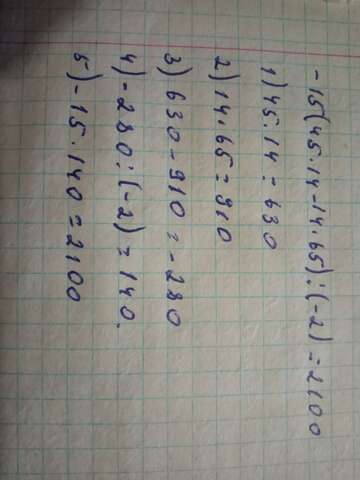 -15(45·14-14·65):(-2)=2100
1) 45·14=630
2) 14·65=910
3) 630-910=-280
4) -280:(-2)=140.
5) -15·140=2100